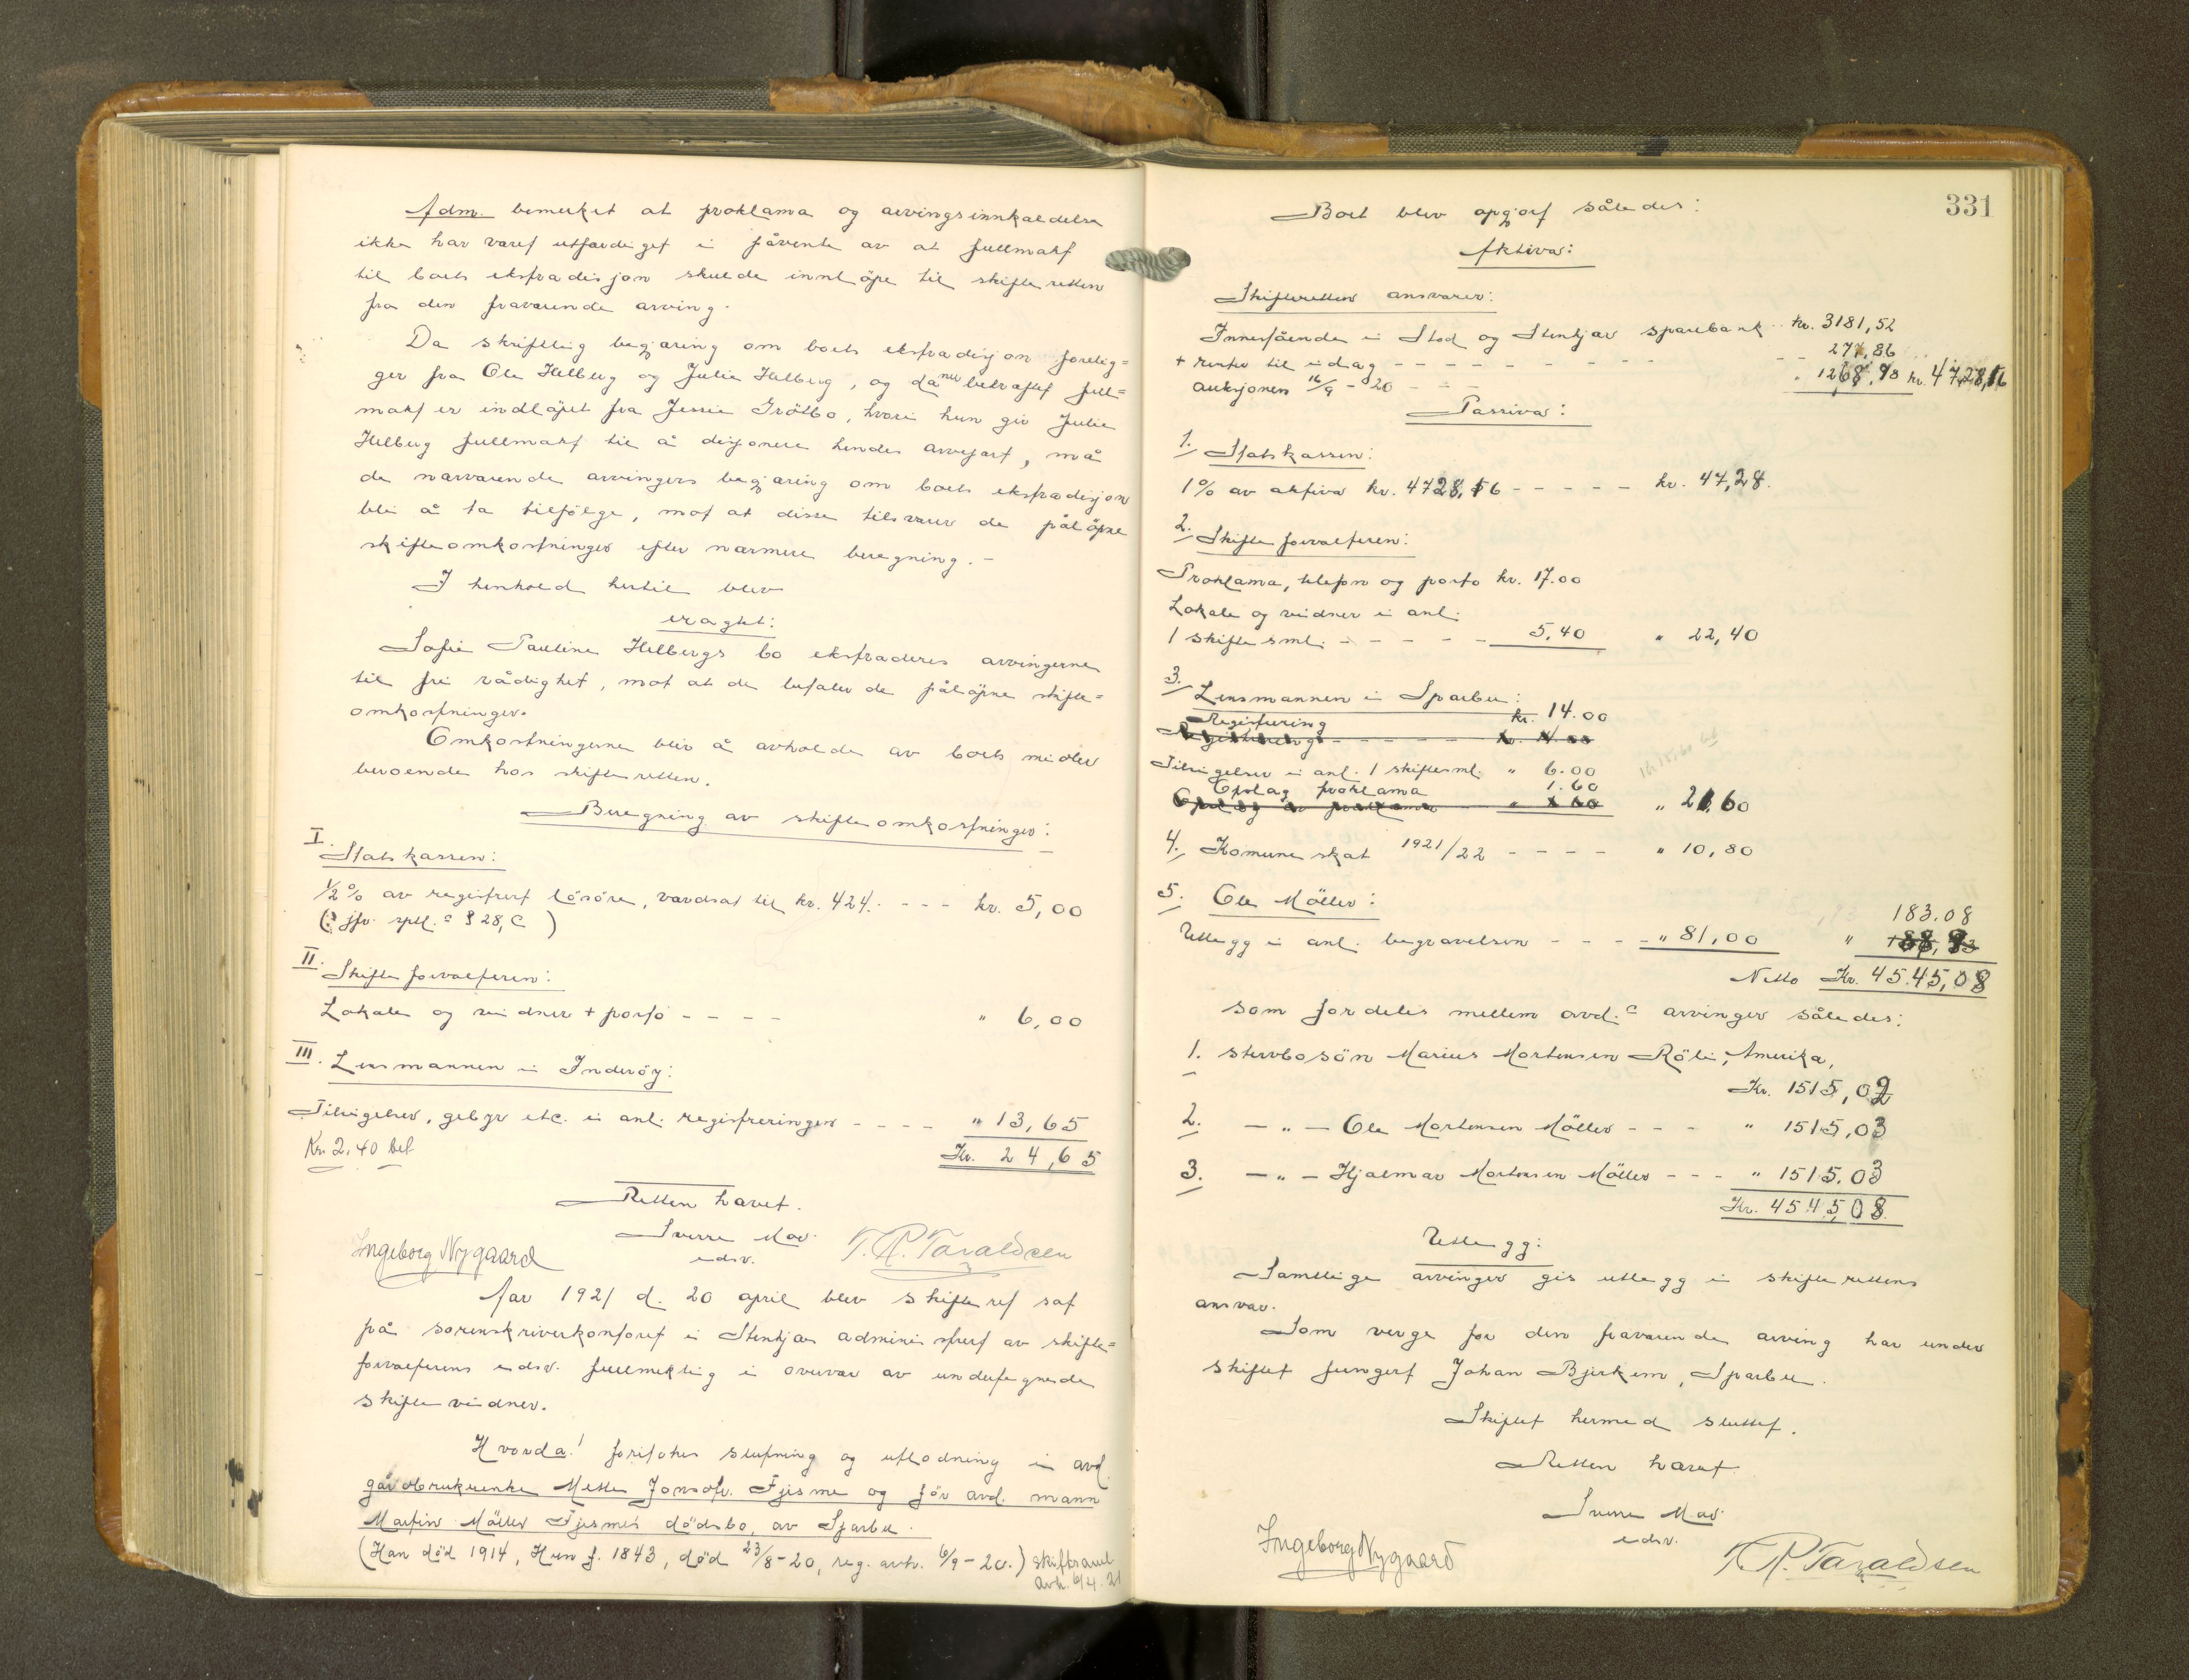 Adm. bemerket at proklama og arvingsinnkaldelse
ikke har vært utfærdiget i påvente av at fullmakt
til boets ekstradisjon skulde innløpe til skifteretten
fra den fraværende arving.
Da skriftlig begjæring om boets ekstradisjon forelig=
ger fra Ole Helberg og Julie Helberg, og da nu bekræftet full=
makt er indløpet fra Jessie Grötbo, hvori hun gir Julie
Helberg fullmakt til å disponere hendes arvepart, må
de nærværende arvingers begjæring om boets ekstradisjon
bli å ta tilfölge, mot at disse tilsvarer de påløpne
skifteomkostninger efter nærmere beregning. -
I henhold hertil blev
eragtet:
Sofie Pauline Helbergs bo ekstraderes arvingerne
til fri rådighet, mot at de betaler de påløpne skifte=
omkostninger.
Omkostningerne blir å avholde av boets midler
beroende hos skifteretten.
Beregning av skifteomkostninger:
I. Statskassen:
1/2 % av registrert lösöre, værdsat til kr. 424. - - - kr. 5,00
(: jfr. spll. § 28, c )
II. Skifteforvalteren:
Lokale og vidner + porto - - - - " 6,00
III. Lensmannen i Inderöy:
Tilsigelser, gebyr etc. i anl. registreringen - - - - " 13,65
Kr. 2,40 bet
Kr. 24,65
Retten hævet.
Sverre Mov.
edsv.
Ingeborg Nygaard
T. R. Taraldsen
Aar 1921 d. 20 april blev skifteret sat
på sorenskriverkontoret i Stenkjær administrert av skifte=
forvalterens edsv. fullmektig i overvær av undertegnede
skiftevidner.
Hvorda! foretokes slutning og utlodning i avd.
gårdbrukerenke Mette Jonsdtr. Fjesme og för avd. mann
Martin Möller Fjesmes dödsbo, av Sparbu.
(Han död 1914, Hun f. 1843, död 23/8-20, reg. avh. 6/9-20.) skiftesaml
avh. 6/4.21
331
Boet blev opgjort således:
Aktiva:
Skifteretten ansvarer:
Innestående i Stod og Stenkjær sparebank - - kr. 3181,52
+ renter til idag - - - - - - - - - - 277,86
auksjonen 16/9 - 20 - - - " 1268,78 kr. 4728,16
Passiva:
1. Statskassen:
1% av aktiva kr. 4728,16 - - - - - kr. 47,28.
2. Skifteforvalteren:
Proklama, telefon og porto kr. 17.00
Lokale og vidner i anl.
1 skiftesml. - - - - - 5,40 " 22,40
3. Lensmannen i Sparbu:
Registrering kr. 14.00
Tilsigelser i anl. 1 skiftesml. " 6.00
Opslag proklama 1.60
" 21.60
4. Komuneskat 1921/22 - - - - " 10,80
5. Ole Möller:
183.08
Utlegg i anl. begravelsen - - - - " 81,00 "
Netto Kr. 4545,08
som fordeles mellem avd. arvinger således:
1. stervbosön Marius Mortensen Röli, Amerika,
Kr. 1515,02
2. - " - Ole Mortensen Möller - - - " 1515,03
3. - " - Hjalmar Mortensen Möller - - - " 1515.03
Kr. 4545,08
Utlegg:
Samtlige arvinger gis utlegg i skifterettens
ansvar.
Som verge for den fraværende arving har under
skiftet fungert Johan Bjerkem, Sparbu.
Skiftet hermed sluttet.
Retten hævet
Sverre Mov.
edsv.
Ingeborg Nygaard
T. R. Taraldsen